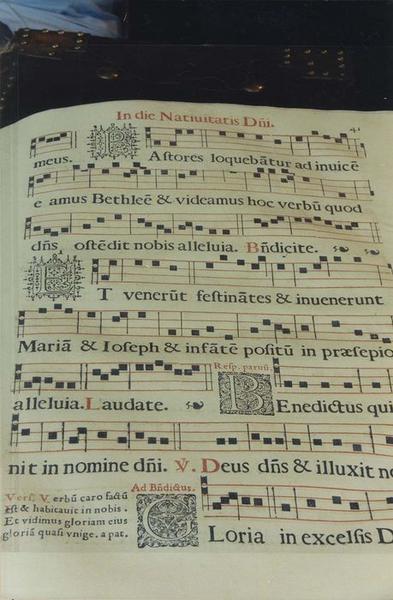 In die Natiuitatis Dñi.
41
meus. PAstores loquebãtur ad inuicē
e amus Bethleē & videamus hoc verbũ quod
dñs, ostēdit nobis alleluia. Bñdicite.
ET venerũt festinãtes & inuenerunt
Mariã & Ioseph & infãtē positũ in præsepio
Resp. paruũ.
alleluia. Laudate. BEnedictus qui
nit in nomine dñi. V. Deus dñs & illuxit no
Ad Bñdictus.
Vers. Verbũ caro factũ
est & habitauit in nobis.
Et vidimus gloriam eius
gloriã quasi vnige. a pat.
GLoria in excelsis D